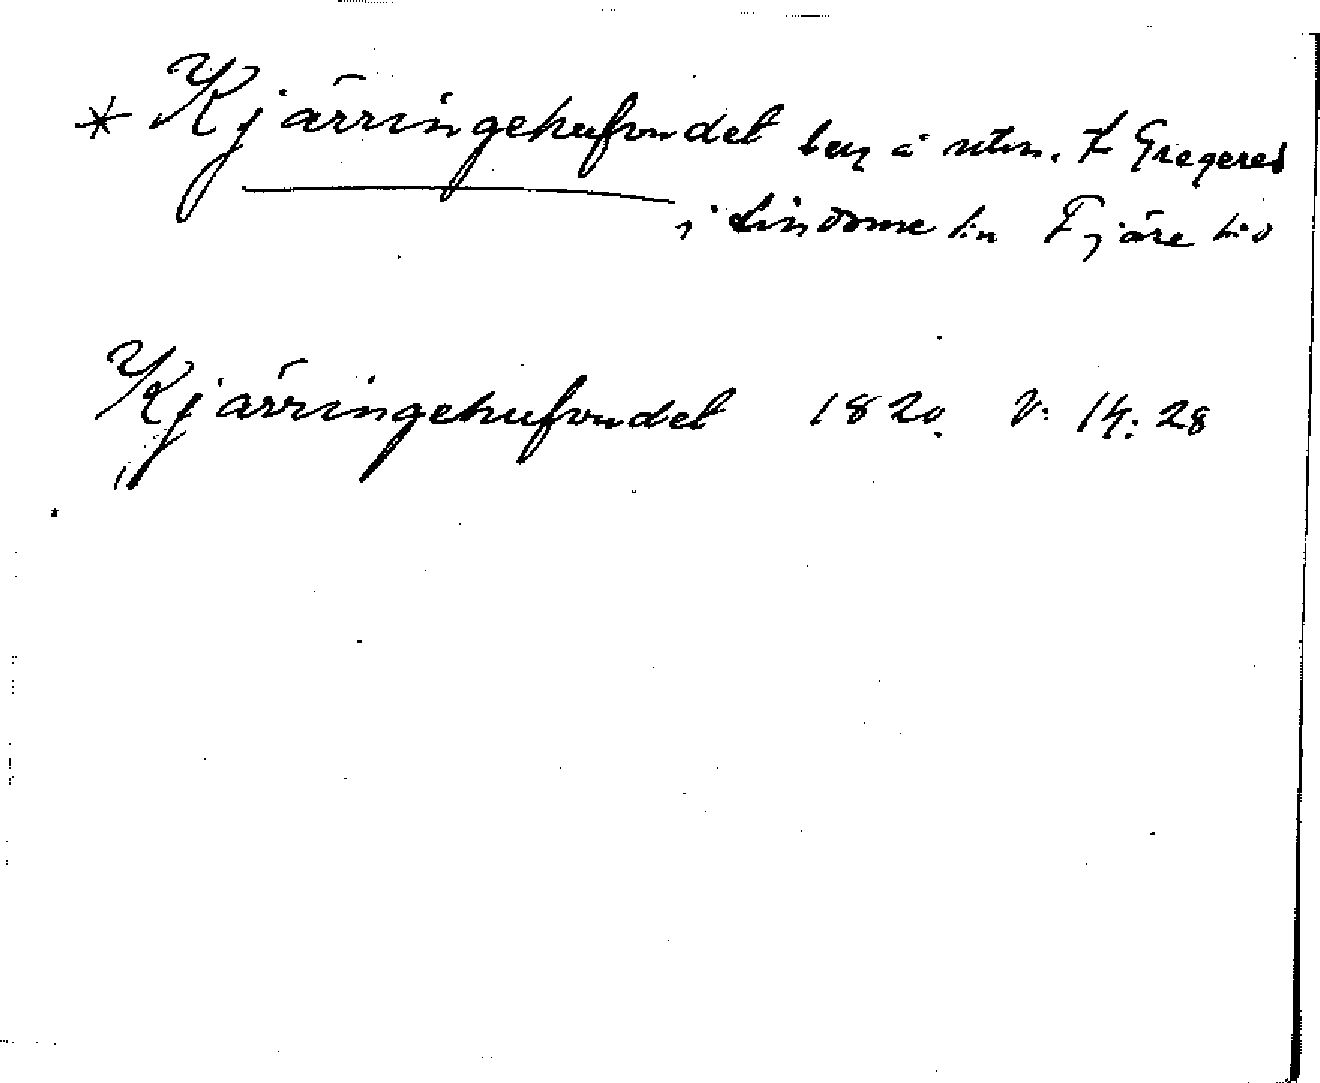 * Kjärringehufvudet beg å utm. t Gregered
i Lindome sn Fjäre hd
Kjärringehufvudet 1820. V: 14: 28